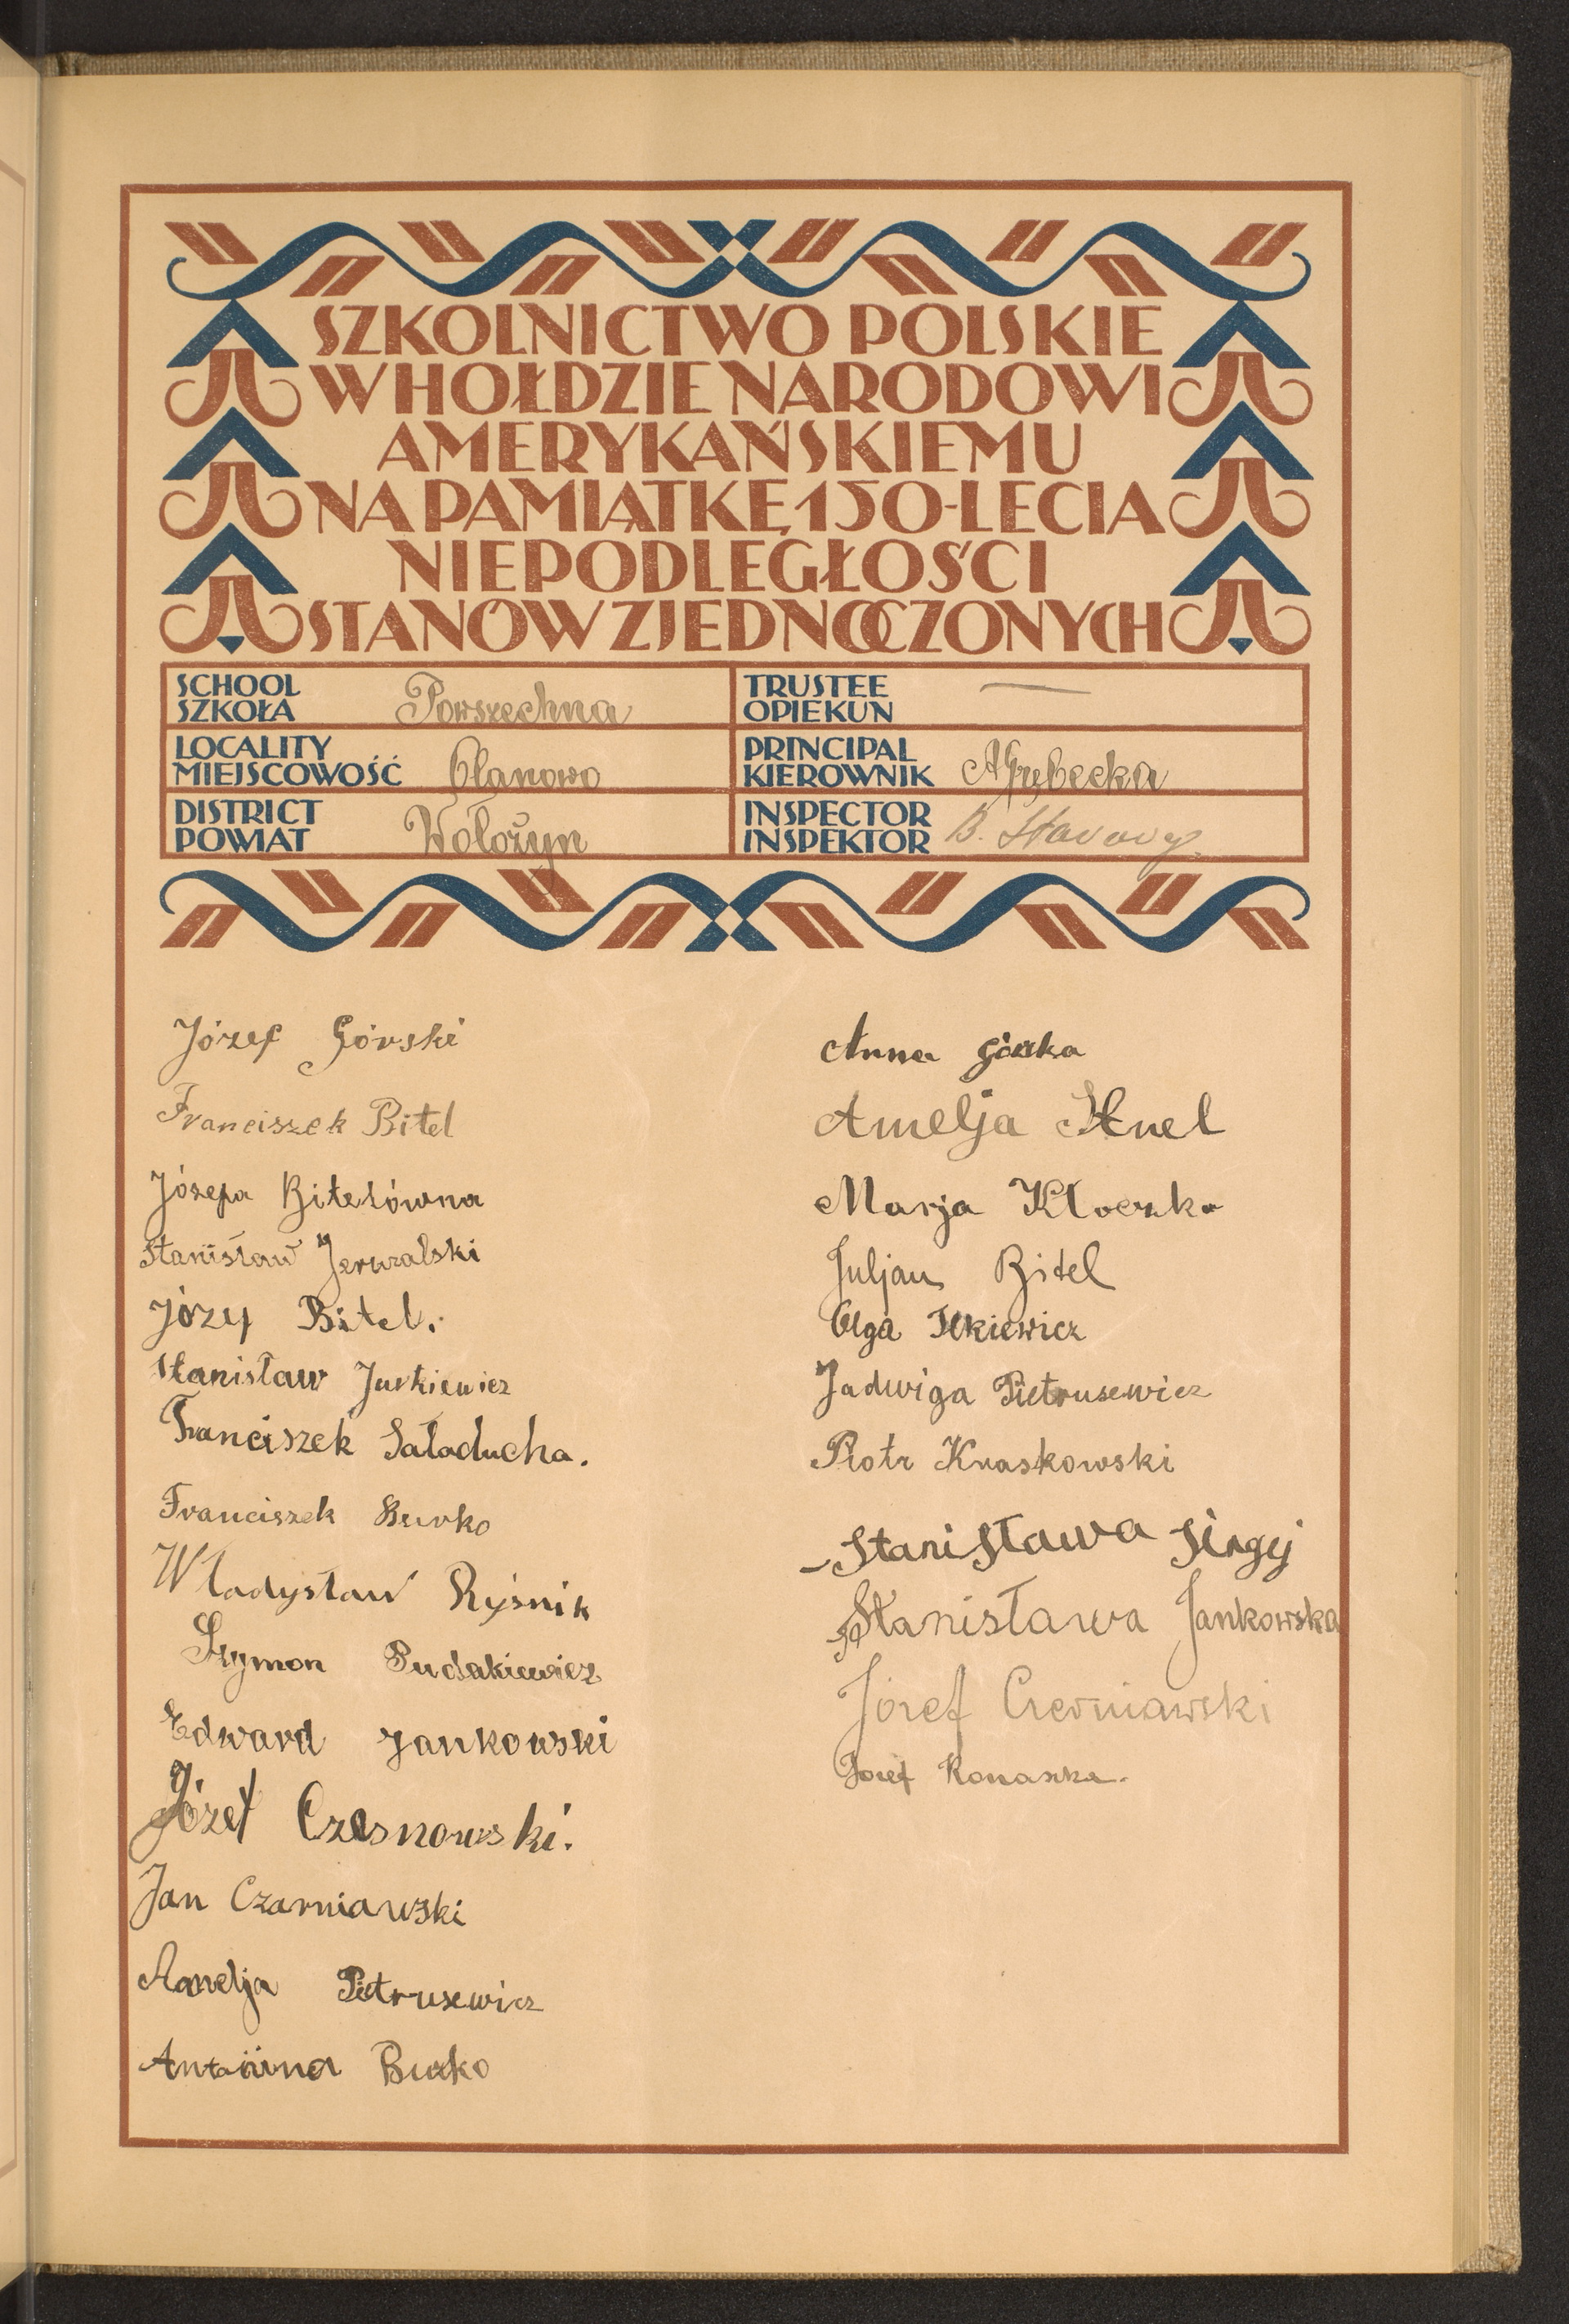 SZKOLNICTWO POLSKIE
W HOŁDZIE NARODOWI
AMERYKAŃSKIEMU
NA PAMIĄTKĘ 150-LECIA
NIEPODLEGŁOŚCI
STANÓW ZJEDNOCZONYCH
SCHOOL
SZKOŁA Powszechna
TRUSTEE
OPIEKUN —
LOCALITY
MIEJSCOWOŚĆ Olanowo
PRINCIPAL
KIEROWNIK A Grębecka
DISTRICT
POWIAT Wołożyn
INSPECTOR
INSPEKTOR B.
Józef Górski
Franciszek Bitel
Józefa Bitelówna
Stanisław Jeruzalski
Józef Bitel.
Stanisław Jurkiewicz
Franciszek Saładucha.
Franciszek Burko
Władysław Ryśnik
Szymon Pudakiewicz
Edward Jankowski
Józef Czesnowski.
Jan Czarniawski
Amelja Pietrusewicz
Antonina Burko
Anna
Amelja
Marja Kłoczko
Juljan Bitel
Olga Ilkiewicz
Jadwiga Pietrusewicz
Piotr Kraskowski
Stanisława
Stanisława Jankowska
Józef Czerniawski
Józef